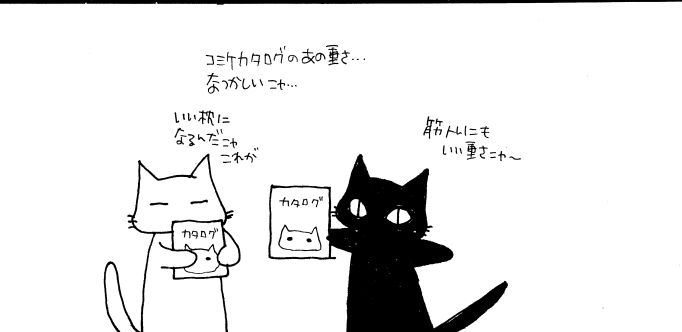 コミケカタログのあの重さ…
なつかしいニャ…
いい枕に
なるんだニャ
これが
筋トレにも
いい重さニャ～
カタログ
カタログ